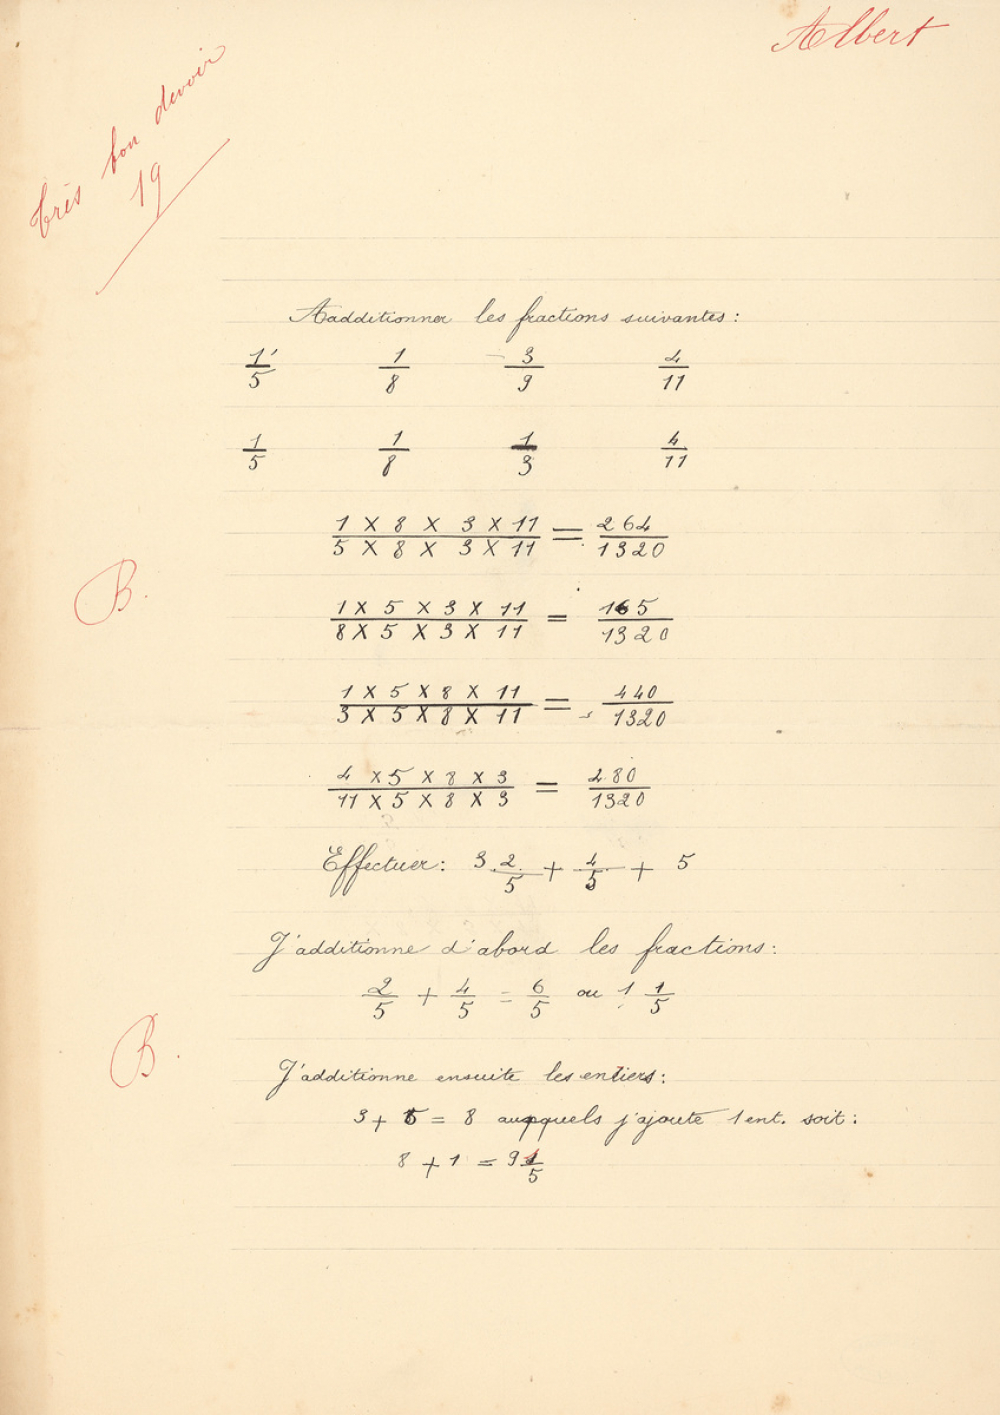 Albert
très bon devoir
19
Aadditionner les fractions suivantes :
1/5 1/8 3/9 4/11
1/5 1/8 1/3 4/11
1 X 8 X 3 X 11 / 5 X 8 X 3 X 11 = 264/1320
B.
1 X 5 X 3 X 11 / 8 X 5 X 3 X 11 = 165/1320
1 X 5 X 8 X 11 / 3 X 5 X 8 X 11 = 440/1320
4 X 5 X 8 X 3 / 11 X 5 X 8 X 3 = 480/1320
Effectuer : 3 2/5 + 4/5 + 5
J'additionne d'abord les fractions :
2/5 + 4/5 = 6/5 ou 1 1/5
B.
J'additionne ensuite les entiers :
3 + 5 = 8 auxquels j'ajoute 1 ent. soit :
8 + 1 = 9 1/5